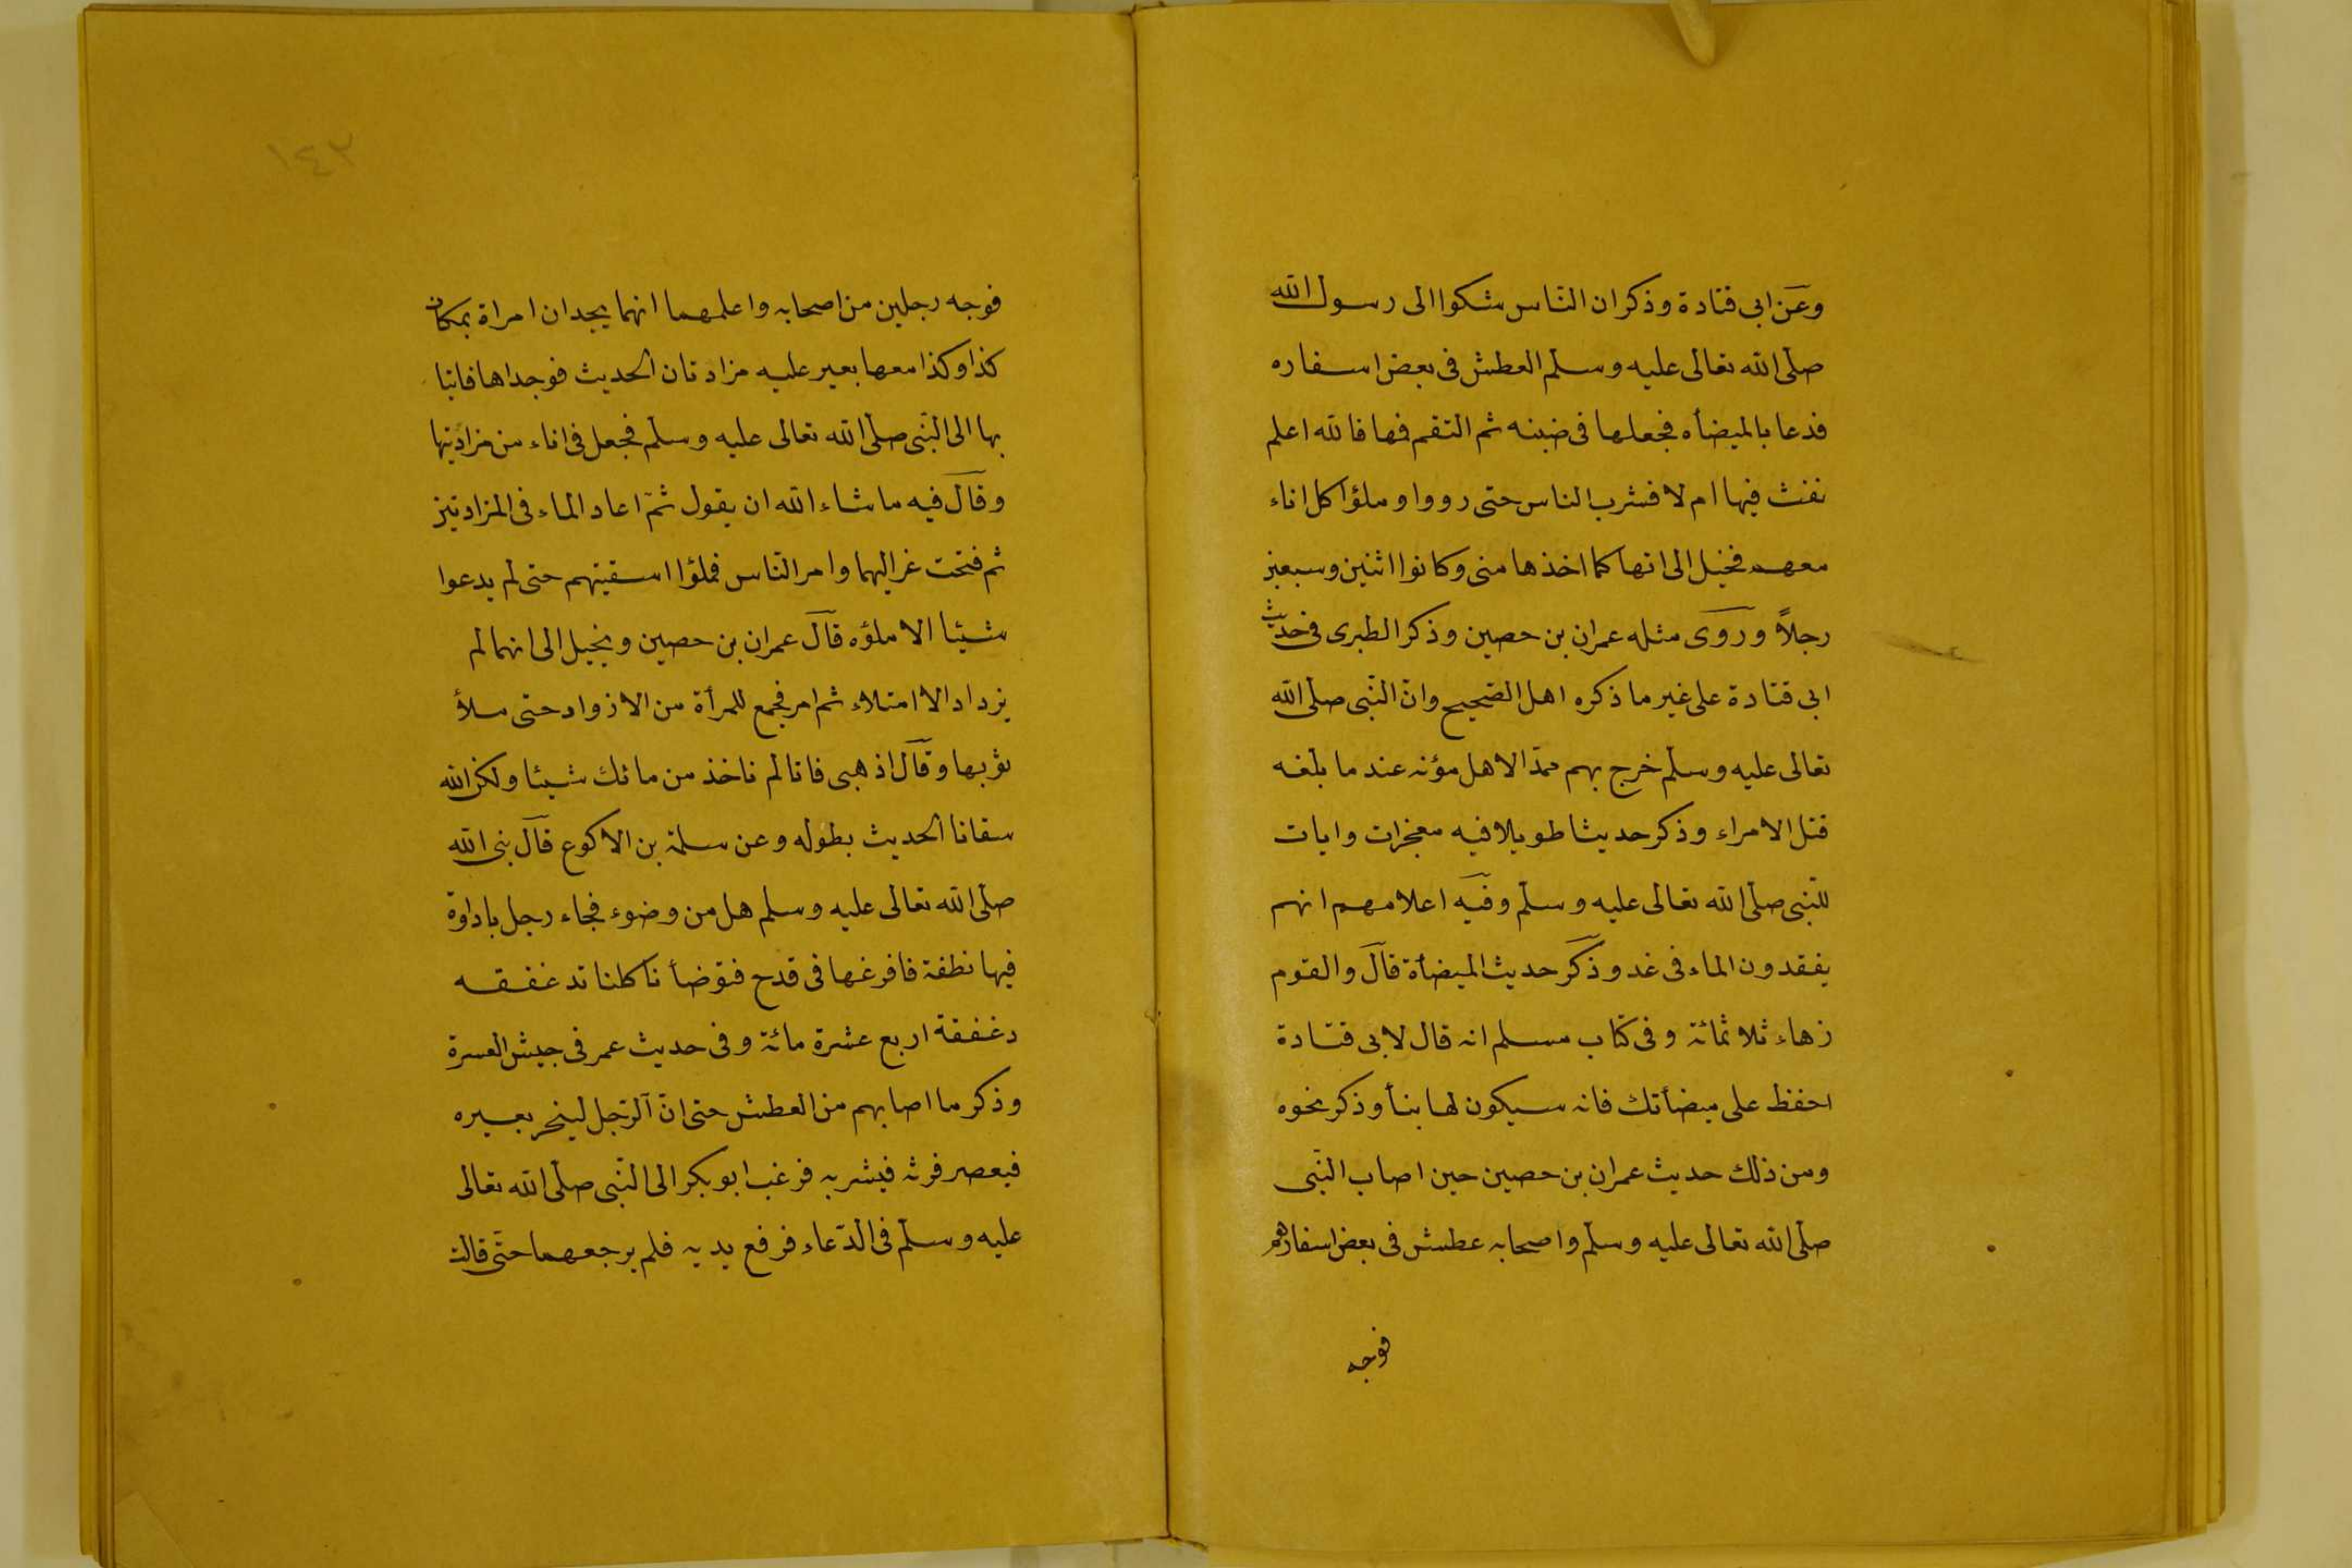 وعن ابى قتادة وذكر ان الناس شكوا الى رسول الله
صلى الله تعالى عليه وسلم العطش فى بعض اسفاره
فدعا بالميضأه فجعلها فى ضبنه ثم التقم فمها فالله اعلم
نفث فيها ام لا فشرب الناس حتى رووا وملؤا كل اناء
معهم فخيل الى انها كما اخذها منى وكانوا اثنين وسبعين
رجلاً وروى مثله عمران بن حصين وذكر الطبرى فى حديث
ابى قتادة على غير ما ذكره اهل الصحيح وانّ النّبى صلى الله
تعالى عليه وسلم خرج بهم ممدّا لاهل مؤته عند ما بلغه
قتل الامراء وذكر حديثا طويلا فيه معجزات وايات
للنّبى صلى الله تعالى عليه وسلم وفيه اعلامهم انهم
يفقدون الماء فى غد وذكر حديث الميضأة قال والقوم
زهاء ثلاثمائة وفى كتاب مسلم انه قال لابى قتادة
احفظ على ميضأتك فانه سيكون لها نبأ وذكر نحوه
ومن ذلك حديث عمران بن حصين حين اصاب النّبى
صلى الله تعالى عليه وسلم واصحابه عطش فى بعض اسفارهم
فوجه
١٤٣
فوجه رجلين من اصحابه واعلمهما انهما يجدان امراة بمكان
كذا وكذا معها بعير عليه مزادتان الحديث فوجداها فاتيا
بها الى النّبى صلى الله تعالى عليه وسلم فجعل فى اناء من مزادتيها
وقال فيه ما شاء الله ان يقول ثمّ اعاد الماء فى المزادتين
ثم فتحت غزاليهما وامر الناس فملؤا اسقيتهم حتى لم يدعوا
شيئا الا ملؤه قال عمران بن حصين ويخيل الى انهما لم
يزدادا الا امتلاء ثم امر فجمع للمرأة من الازواد حتى ملأ
ثوبها وقال اذهبى فانا لم ناخذ من مائك شيئا ولكن الله
سقانا الحديث بطوله وعن سلمة بن الاكوع قال نبى الله
صلى الله تعالى عليه وسلم هل من وضوء فجاء رجل باداوة
فيها نطفة فافرغها فى قدح فتوضأنا كلنا ندغفقه
دغفقة اربع عشرة مائة وفى حديث عمر فى جيش العسرة
وذكر ما اصابهم من العطش حتى انّ الرّجل لينحر بعيره
فيعصر فرثه فيشربه فرغب ابو بكر الى النّبى صلى الله تعالى
عليه وسلم فى الدّعاء فرفع يديه فلم يرجعهما حتّى قالت